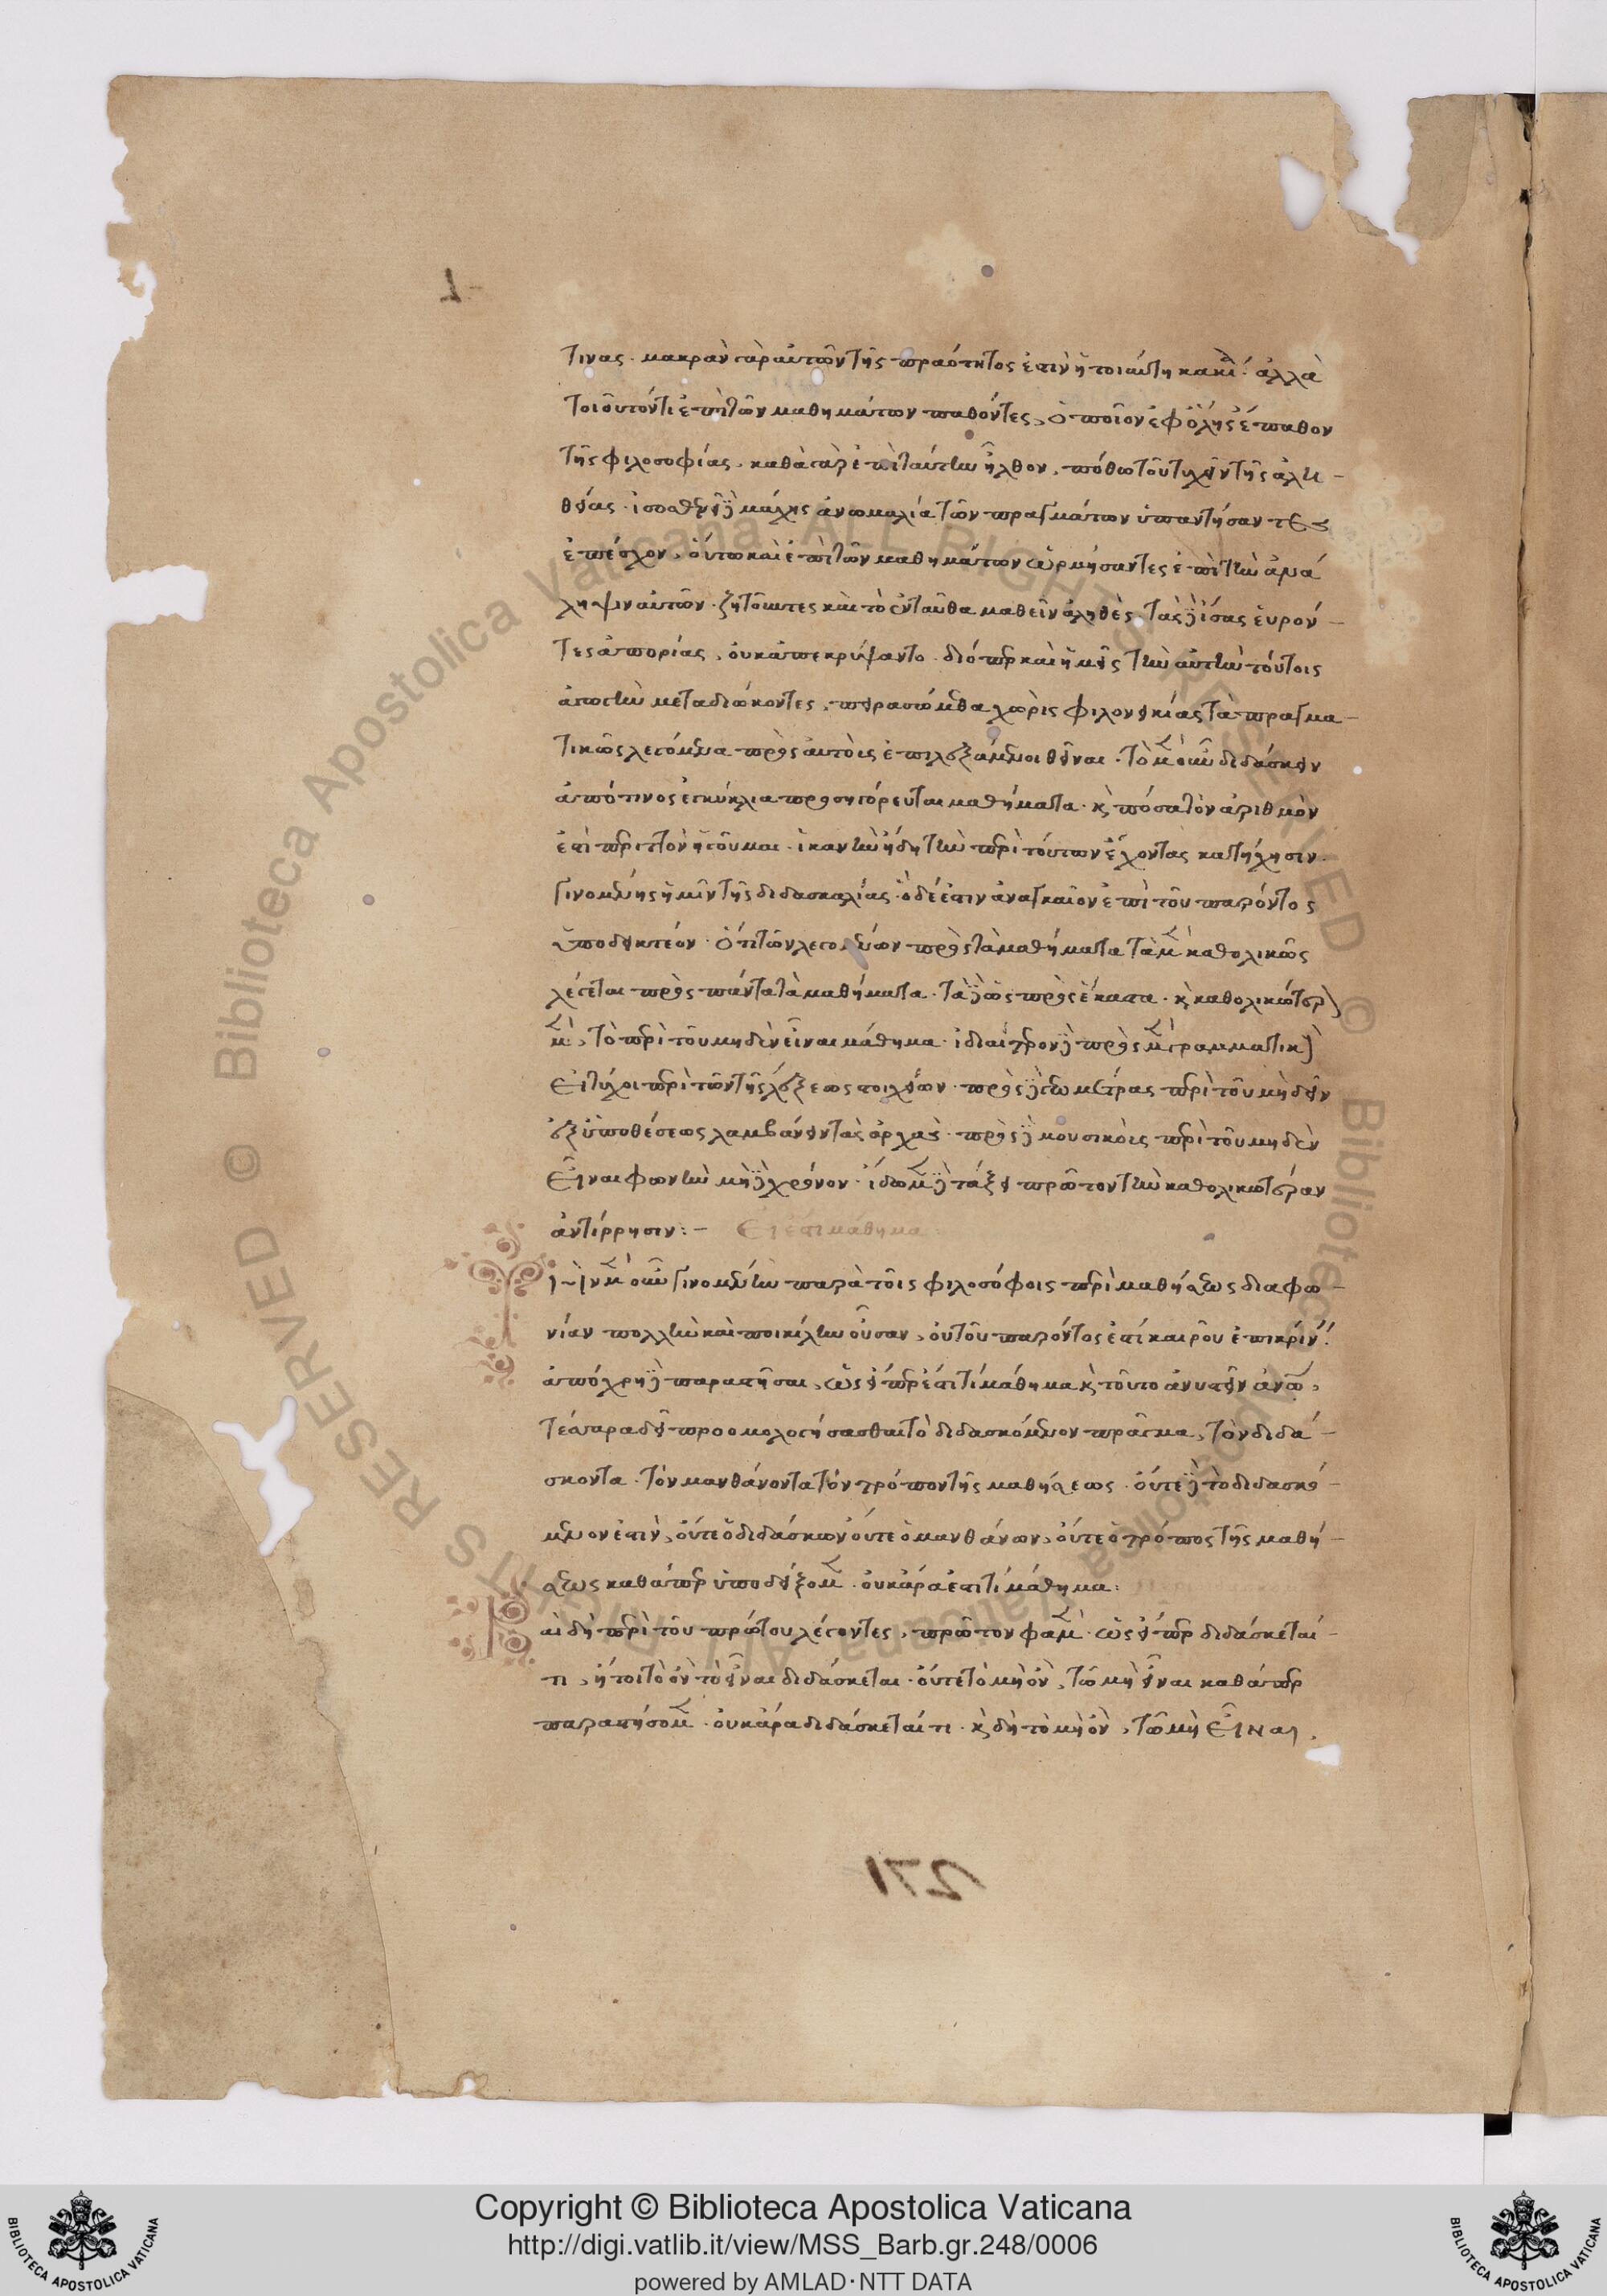 τινας. μακρὰν γὰρ αὐτῶν τῆς πραότητος ἐστὶν ἡ τοιαύτη κακία. ἀλλὰ
τοιοῦτόν τι ἐπὶ τῶν μαθημάτων παθόντες, ὁποῖον ἐφ ὅλης ἔπαθον
τῆς φιλοσοφίας. καθὰ γὰρ ἐπὶ ταύτην ἦλθον, πόθω τοῦ τυχεῖν τῆς ἀλη-
θείας. ἰσοσθενεῖ δὲ μάχης ἀνωμαλία τῶν πραγμάτων ὑπαντήσαντες
ἐπέσχον, οὕτω καὶ ἐπὶ τῶν μαθημάτων ὁρμήσαντες ἐπὶ τὴν ἀνά
ληψιν αὐτῶν. ζητοῦντες καὶ τὸ ἐνταῦθα μαθεῖν ἀληθὲς, τὰς δὲ ἴσας εὑρόν-
τες ἀπορίας, οὐκ ἀπεκρύψαντο. διόπερ καὶ ἡμεῖς τὴν αὐτὴν τούτοις
ἀγωγὴν μεταδιώκοντες, πειρασόμεθα χωρὶς φιλονεικίας τὰ πραγμα-
τικῶς λεγόμενα πρὸς αὐτοὺς ἐπιλεξάμενοι θεῖναι. τὸ μὲν οὖν διδάσκειν
ἀπό τινος ἐγκύκλια προσηγόρευται μαθήματα. καὶ πόσα τὸν ἀριθμὸν
ἐστὶ περιττὸν ἡγοῦμαι. ἱκανὴν ἤδη τὴν περὶ τούτων ἔχοντας κατήχησιν.
γινομένης ἡμῖν τῆς διδασκαλίας. ὃ δέ ἐστιν ἀναγκαῖον ἐπὶ τοῦ παρόντος
ὑποδεικτέον. ὅτι τῶν λεγομένων πρὸς τὰ μαθήματα τὰ μὲν καθολικῶς
λέγεται πρὸς πάντα τὰ μαθήματα. τὰ δὲ ὡς πρὸς ἕκαστα. καὶ καθολικώτερον
μὲν, τὸ περὶ τοῦ μηδὲν εἶναι μάθημα. ἰδιαίτερον δὲ πρὸς μὲν γραμματικοὺς
εἰ τύχοι περὶ τῶν τῆς λέξεως στοιχείων. πρὸς δὲ γεωμέτρας περὶ τοῦ μὴ δεῖν
ἐξ ὑποθέσεως λαμβάνειν τὰς ἀρχάς. πρὸς δὲ μουσικοὺς περὶ τοῦ μηδὲν
εἶναι φωνὴν μὴ δὲ χρόνον. ἴδωμεν δὲ τάξει πρῶτον τὴν καθολικωτέραν
ἀντίρρησιν:- Εἰ ἔστι μάθημα
Τὴν μὲν οὖν γινομένην παρὰ τοῖς φιλοσόφοις περὶ μαθήσεως διαφω-
νίαν πολλὴν καὶ ποικίλην οὖσαν, οὐ τοῦ παρόντος ἐστί καιροῦ ἐπικρίνειν.
ἀπόχρη δὲ παραστῆσαι, ὡς εἴπερ ἔστι τί μάθημα καὶ τοῦτο ἀνυστὸν ἀνθρώπω,
τέσσαρα δεῖ προομολογήσασθαι τὸ διδασκόμενον πρᾶγμα, τὸν διδά-
σκοντα. τὸν μανθάνοντα τὸν τρόπον τῆς μαθήσεως. οὔτε δὲ τὸ διδασκό-
μενον ἐστὶν, οὔτε ὁ διδάσκων οὔτε ὁ μανθάνων, οὔτε ὁ τρόπος τῆς μαθή-
σεως καθάπερ ὑποδείξομεν. οὐκ ἄρα ἔστι τί μάθημα:
Καὶ δὴ περὶ τοῦ πρώτου λέγοντες, πρῶτον φαμὲν. ὡς εἴπερ διδάσκεταί-
τι, ἤτοι τὸ ὂν τὸ εἶναι διδάσκεται. οὔτε τὸ μὴ ὂν, τῶ μὴ εἶναι καθάπερ
παραστήσομεν. οὐκ ἄρα διδάσκεταί τι. καὶ δὴ τὸ μὴ ὂν, τῶ μὴ εἶναι,
271
Copyright © Biblioteca Apostolica Vaticana
http://digi.vatlib.it/view/MSS_Barb.gr.248/0006
powered by AMLAD·NTT DATA
BIBLIOTECA APOSTOLICA VATICANA
BIBLIOTECA APOSTOLICA VATICANA